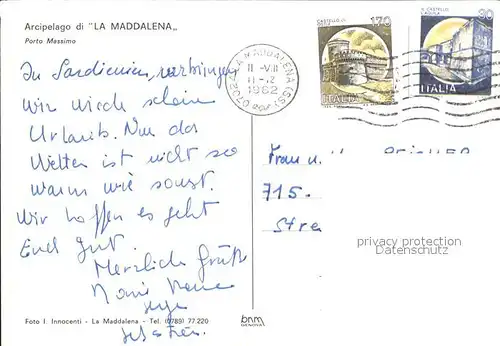 Arcipelago di "LA MADDALENA„
Porto Massimo
CASTELLO DI
170
ITALIA
IL CASTELLO
L'AQUILA
30
ITALIA
07024 LA MADDALENA (SS)
11 -VII
11-12
1982
In Sardinien, verbringen
wir wieder
Urlaub. Nur das
Wetter ist nicht so
warm wie sonst.
Wir hoffen es geht
Euch gut.
Herzliche Grüße
Frau u.
715.
Stre
privacy protection
Datenschutz
Foto I. Innocenti - La Maddalena - Tel. (0789) 77.220
bnm
GENOVA